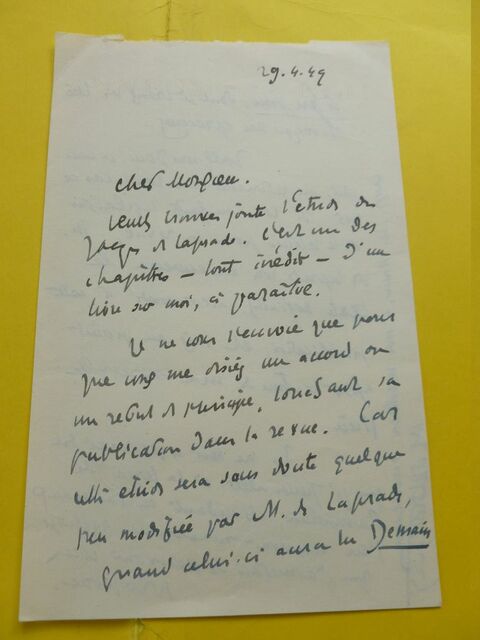 29.4.49
cher Monsieur.
Veuillez trouver jointe l'étude de
Jacques de Laprade. C'est un des
chapitres – tout inédit – d'un
livre sur moi, à paraître.
Je ne vous l'envoie que pour
que vous me disiez un accord ou
un refus de principe, touchant sa
publication dans la revue. Car
cette étude sera sans doute quelque
peu modifiée par M. de Laprade,
quand celui-ci aura lu Demain